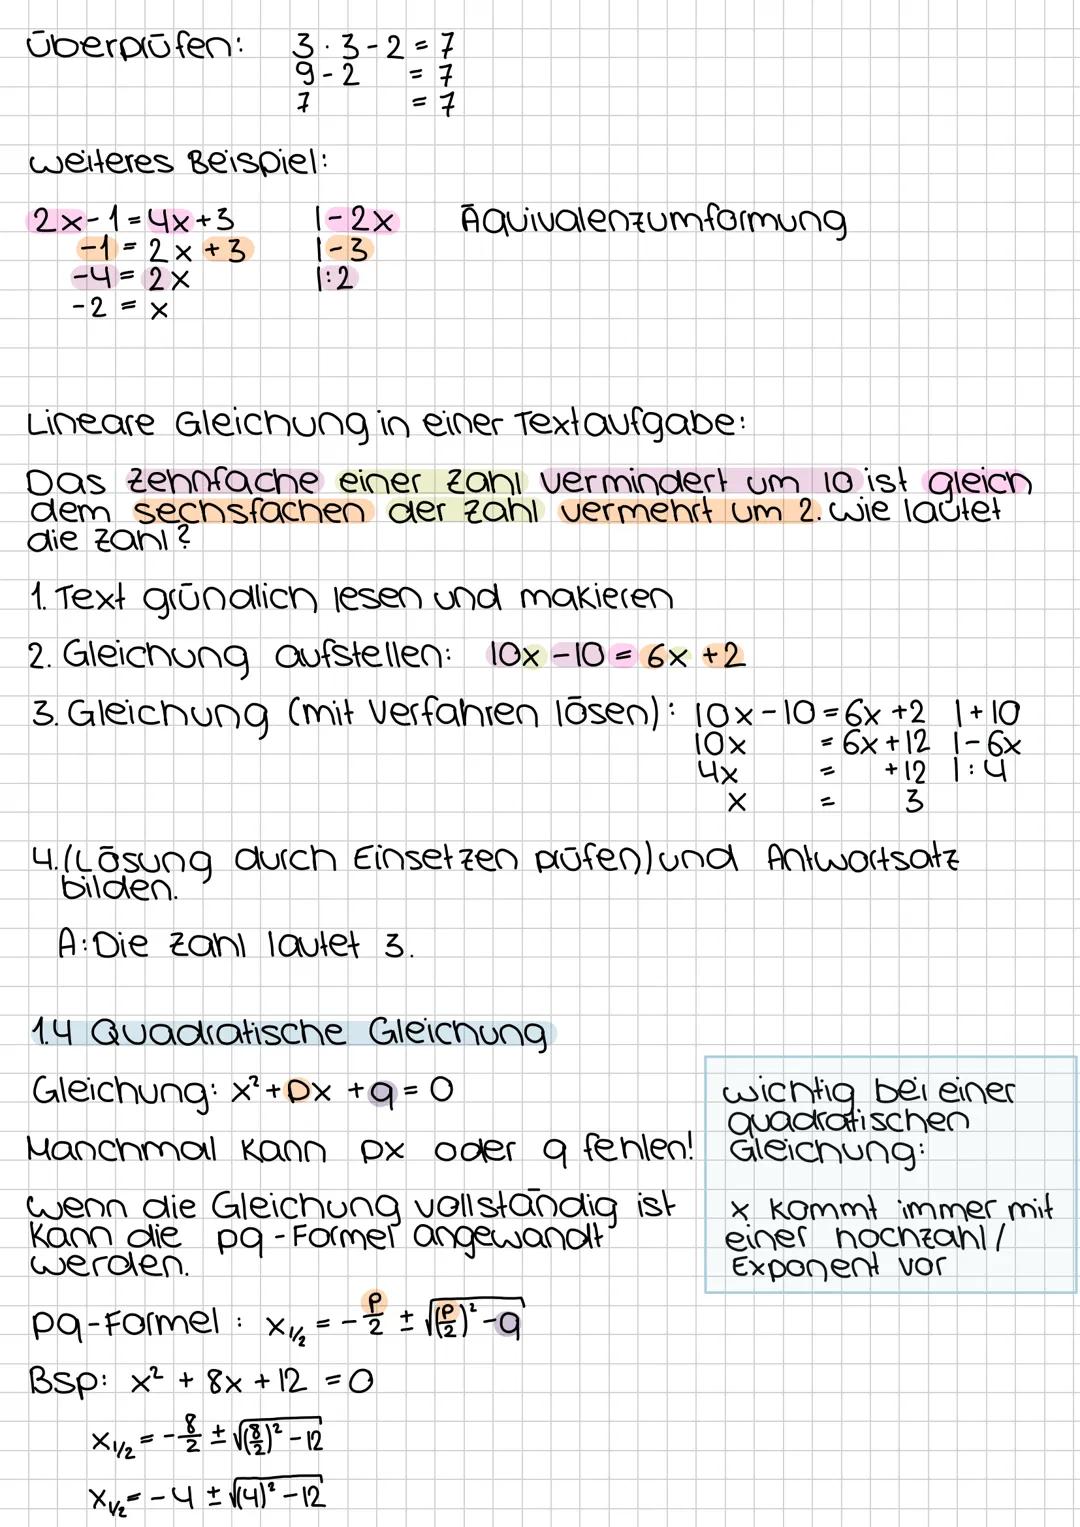 überprüfen: 3 · 3 - 2 = 7
9 - 2 = 7
7 = 7
weiteres Beispiel:
2x - 1 = 4x + 3 |-2x Äquivalenzumformung
-1 = 2x + 3 |-3
-4 = 2x |:2
-2 = x
Lineare Gleichung in einer Textaufgabe:
Das zehnfache einer Zahl vermindert um 10 ist gleich
dem sechsfachen der Zahl vermehrt um 2. Wie lautet
die Zahl?
1. Text gründlich lesen und makieren
2. Gleichung aufstellen: 10x - 10 = 6x + 2
3. Gleichung (mit Verfahren lösen): 10x - 10 = 6x + 2 |+10
10x = 6x + 12 |-6x
4x = +12 |:4
x = 3
4. (Lösung durch Einsetzen prüfen) und Antwortsatz
bilden.
A: Die Zahl lautet 3.
1.4 Quadratische Gleichung
Gleichung: x² + px + q = 0
Manchmal kann px oder q fehlen!
wenn die Gleichung vollständig ist
kann die pq-Formel angewandt
werden.
wichtig bei einer
quadratischen
Gleichung:
x kommt immer mit
einer hochzahl /
Exponent vor
pq-Formel: x₁/₂ = -p/2 ± √((p/2)² - q)
Bsp: x² + 8x + 12 = 0
x₁/₂ = -8/2 ± √((8/2)² - 12)
x₁/₂ = -4 ± √((4)² - 12)